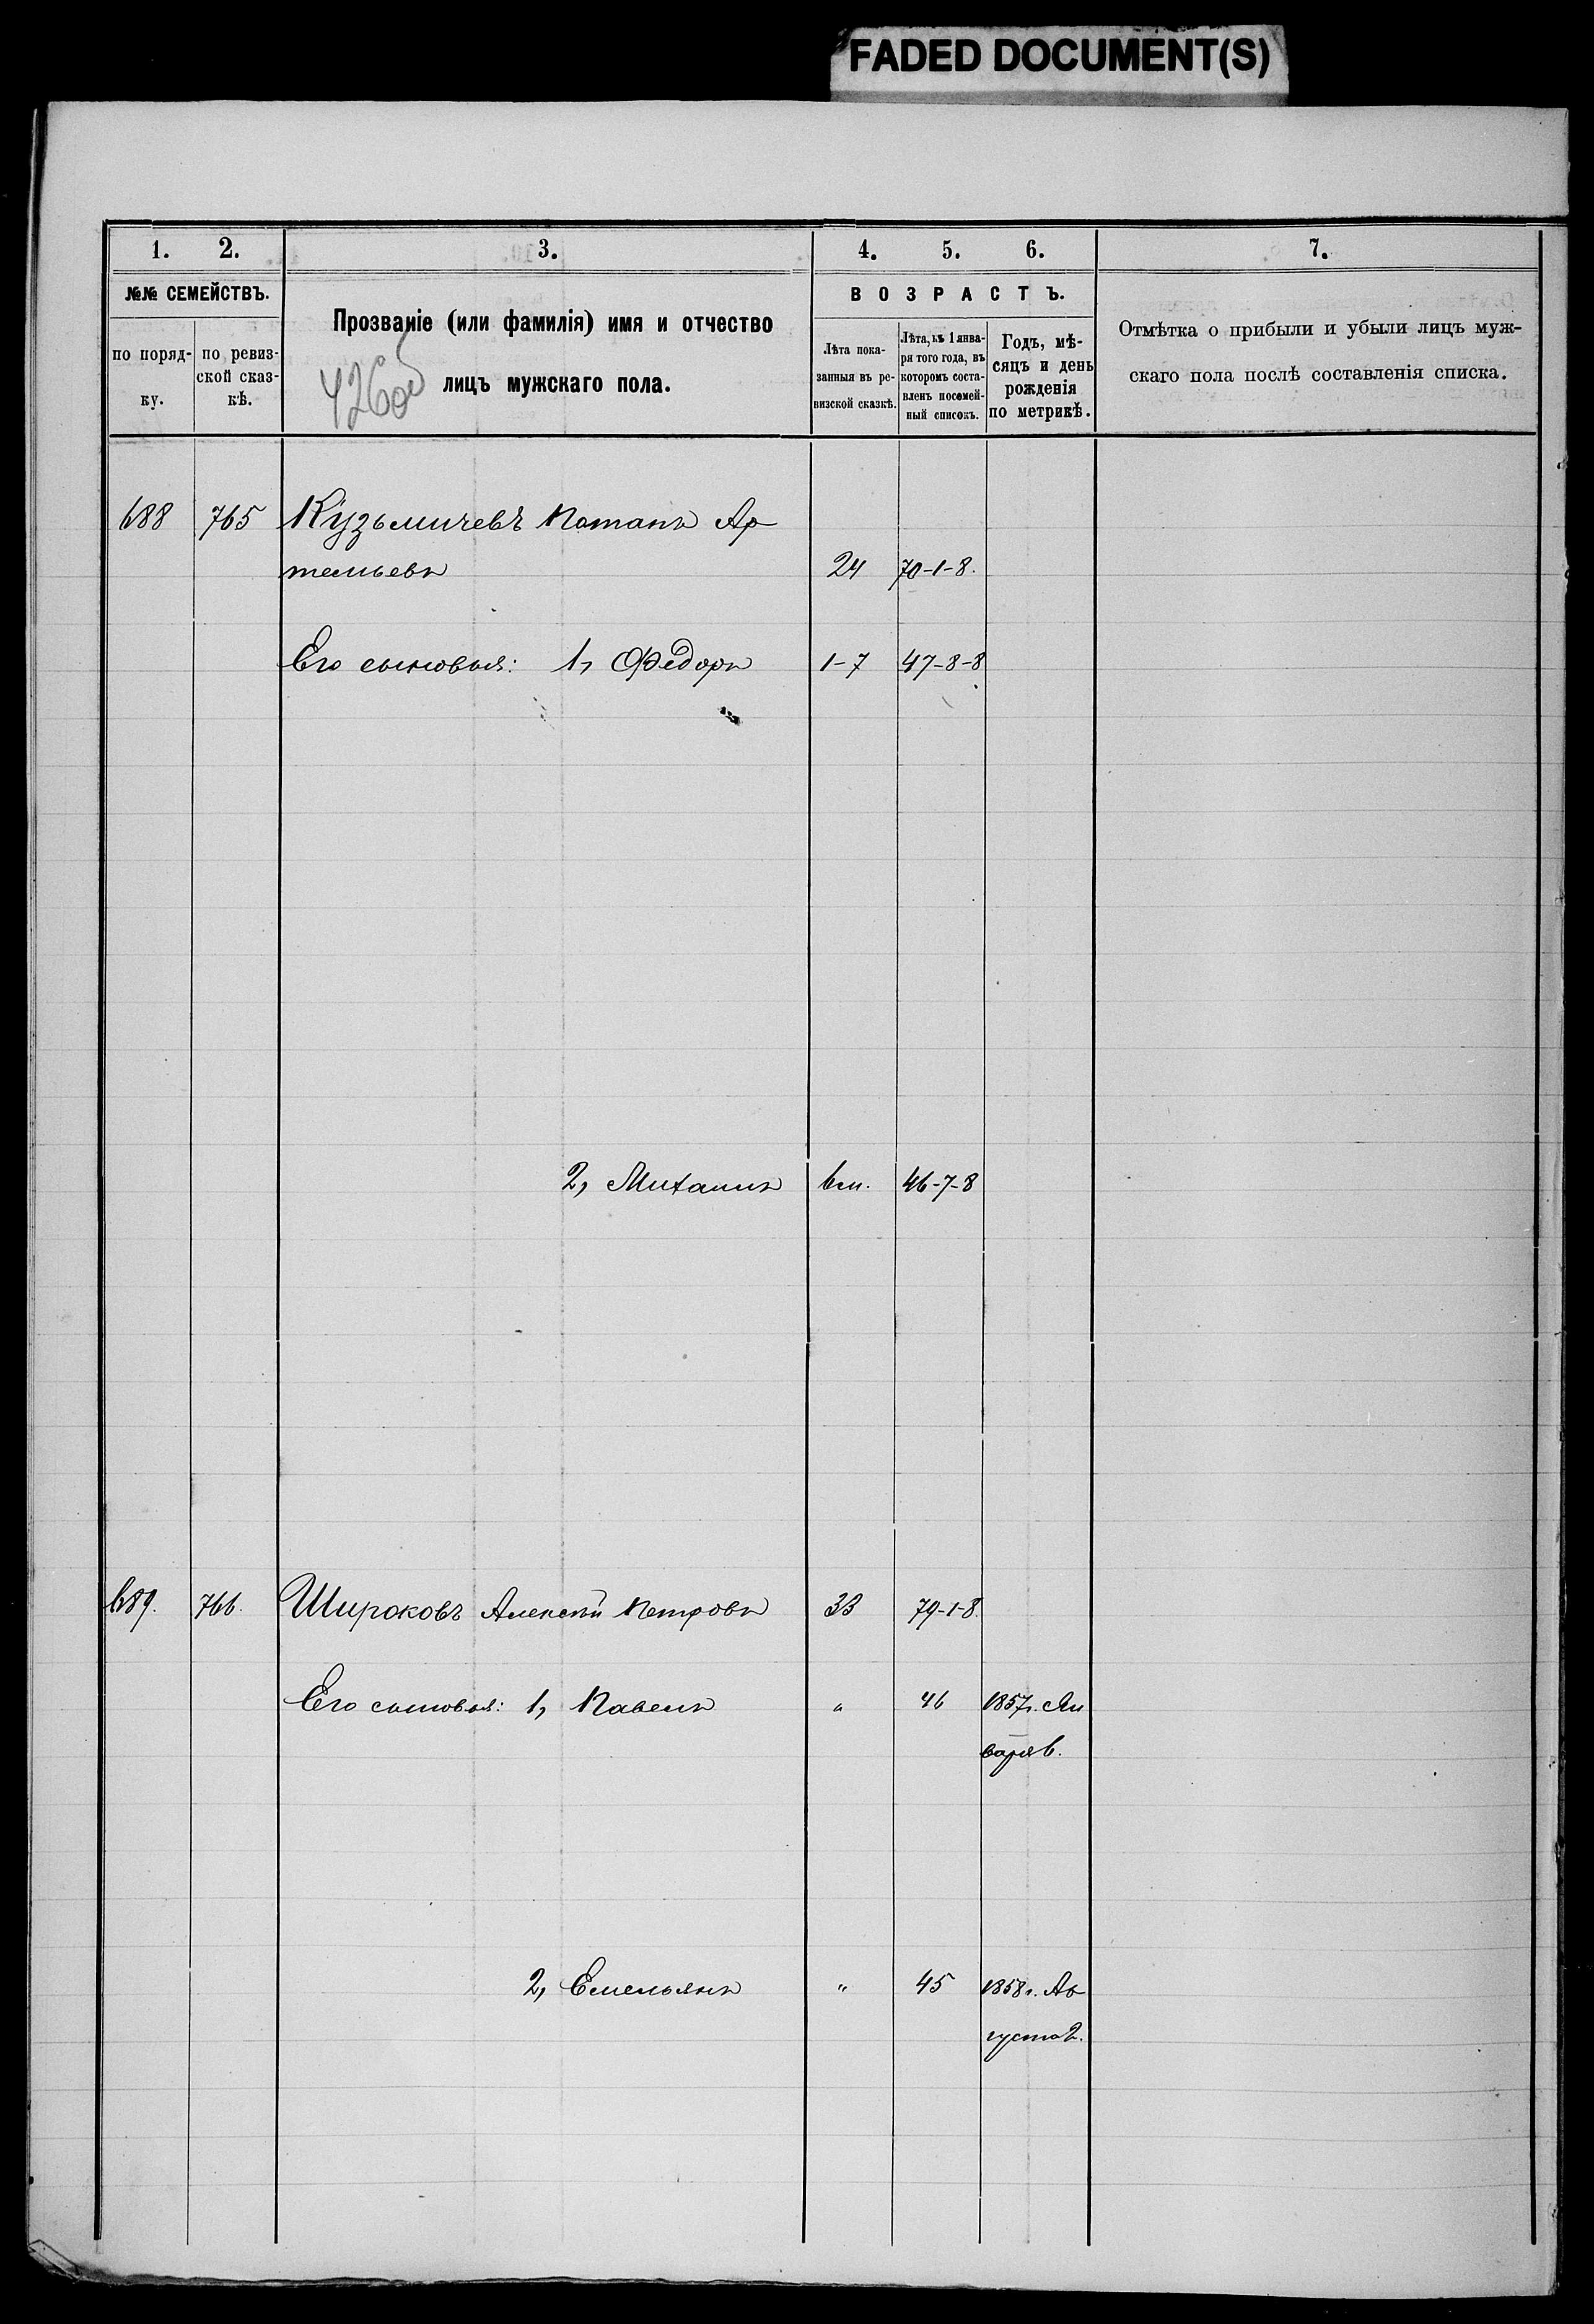 FADED DOCUMENT(S)
1. 2. 3. 4. 5. 6. 7.
№№ СЕМЕЙСТВЪ.
по поряд-
ку.
по ревиз-
ской сказ-
кѣ.
Прозваніе (или фамилія) имя и отчество
лицъ мужскаго пола.
426об
ВОЗРАСТЪ.
Лѣта пока-
занныя въ ре-
визской сказкѣ.
Лѣта, къ 1 янва-
ря того года, въ
которомъ соста-
вленъ посемей-
ный списокъ.
Годъ, мѣ-
сяцъ и день
рожденія
по метрикѣ.
Отмѣтка о прибыли и убыли лицъ муж-
скаго пола послѣ составленія списка.
688 765 Кузьмичевъ Потапъ Ар
темьевъ 24 70-1-8.
Его сыновья: 1, Федоръ 1-7 47-8-8
2, Михаилъ 6 м. 46-7-8
689. 766. Широковъ Алексѣй Петровъ 33 79-1-8.
Его сыновья: 1, Павелъ " 46 1857г. Ян
варя 6.
2, Емельянъ " 45 1858г. Ав
густа 2.